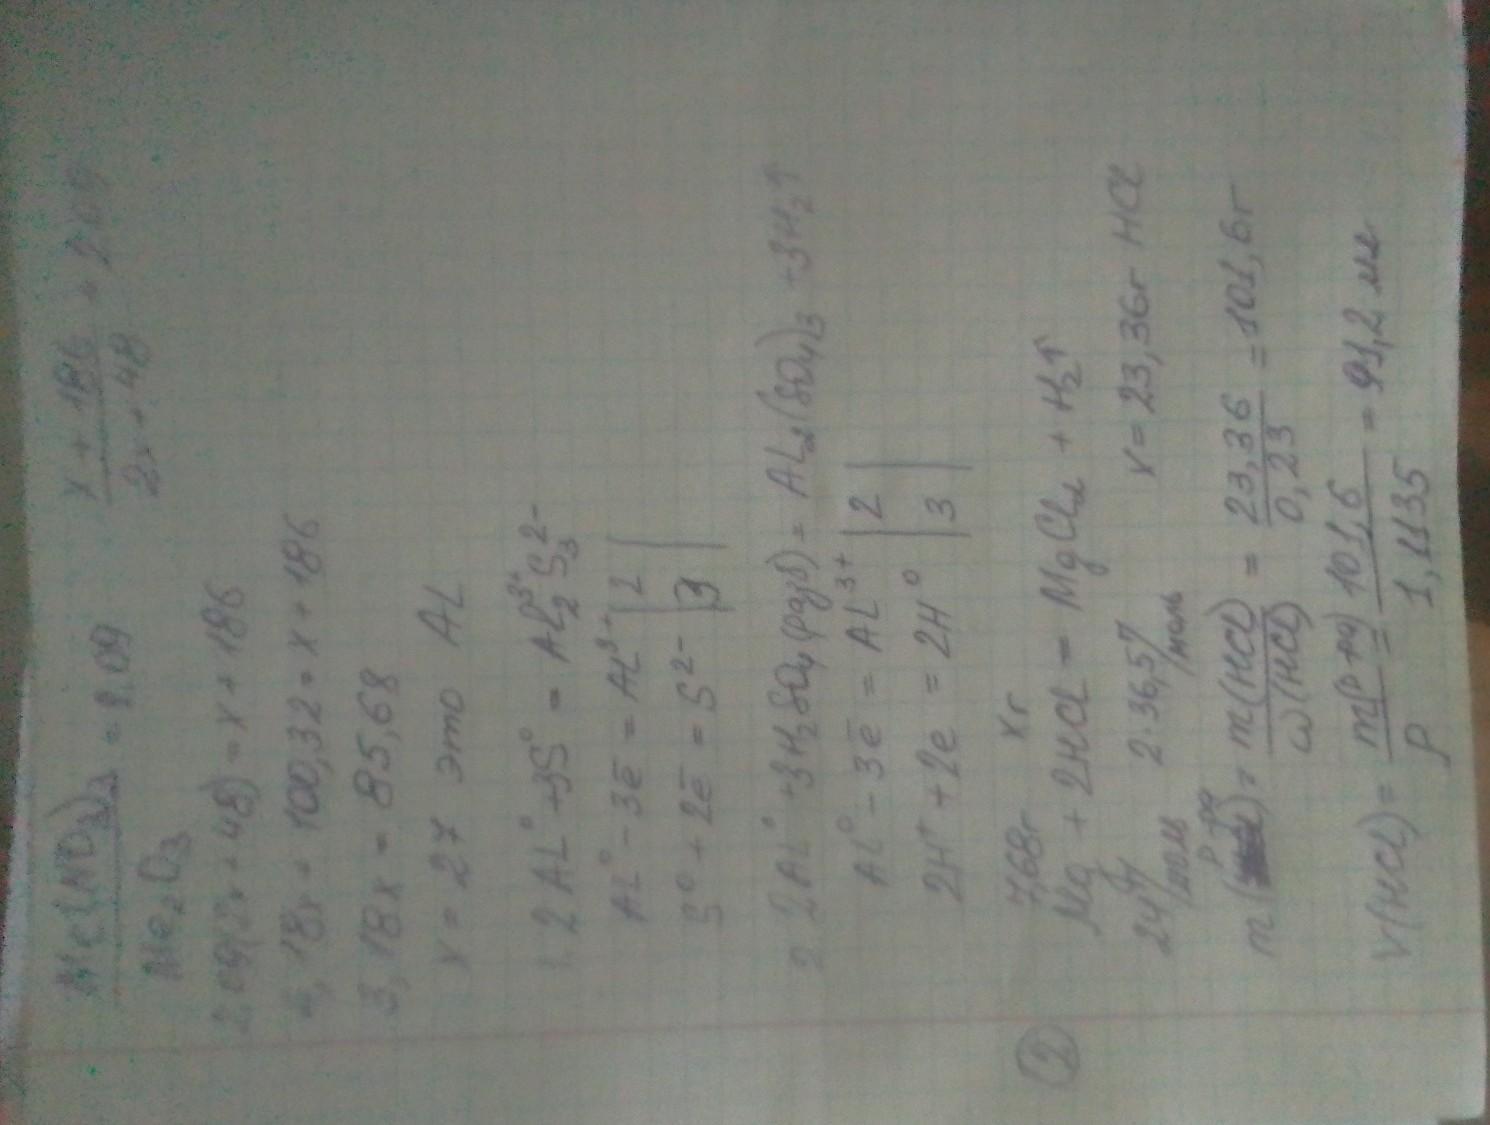 Me(NO3)3 / Me2O3 = 2,09   x + 186 / 2x + 48 = 2,09
2,09(2x + 48) = x + 186
4,18x + 100,32 = x + 186
3,18x = 85,68
x = 27 это AL
1. 2AL⁰ + 3S⁰ = AL₂³⁺S₃²⁻
AL⁰ - 3ē = AL³⁺ | 2 |
S⁰ + 2ē = S²⁻ | 3 |
2 2AL⁰ + 3H2SO4(разб) = AL2(SO4)3 + 3H2↑
AL⁰ - 3ē = AL³⁺ | 2 |
2H⁺ + 2e = 2H⁰ | 3 |
7,68г xг
② Mg + 2HCl = MgCl2 + H2↑
24г/моль 2·36,5г/моль x = 23,36г HCl
m(р-ра) = m(HCl) / ω(HCl) = 23,36 / 0,23 = 101,6г
V(HCl) = m(р-ра) / ρ = 101,6 / 1,1135 = 91,2 мл